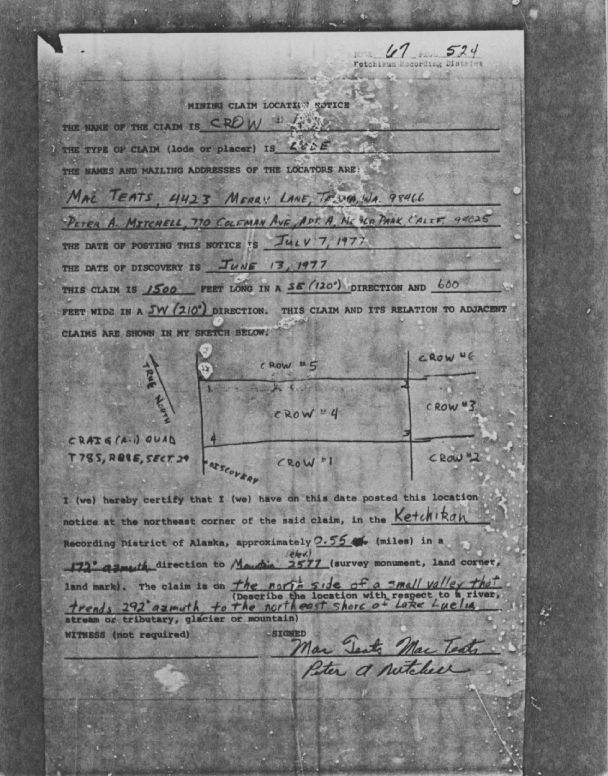 67 PAGE 524
Ketchikan Recording District
MINING CLAIM LOCATION NOTICE
THE NAME OF THE CLAIM IS CROW #
THE TYPE OF CLAIM (lode or placer) IS LODE
THE NAMES AND MAILING ADDRESSES OF THE LOCATORS ARE:
MAC TEATS, 4423 MERRY LANE, TACOMA, WA. 98466
PETER A. MITCHELL, 770 COLEMAN AVE, APT. A, MENLO PARK CALIF. 94025
THE DATE OF POSTING THIS NOTICE IS JULY 7, 1977
THE DATE OF DISCOVERY IS JUNE 13, 1977
THIS CLAIM IS 1500 FEET LONG IN A SE (120°) DIRECTION AND 600
FEET WIDE IN A SW (210°) DIRECTION. THIS CLAIM AND ITS RELATION TO ADJACENT
CLAIMS ARE SHOWN IN MY SKETCH BELOW:
TRUE NORTH
CROW #5
CROW #6
1
2
CROW #4
CROW #3
CRAIG (A-1) QUAD
4
3
T78S, R88E, SECT 29
DISCOVERY
CROW #1
CROW #2
I (we) hereby certify that I (we) have on this date posted this location
notice at the northeast corner of the said claim, in the Ketchikan
Recording District of Alaska, approximately 0.55 (miles) in a
172° azmuth direction to Mountain (elev.) 2577 (survey monument, land corner,
land mark). The claim is on the north side of a small valley that
(Describe the location with respect to a river,
trends 292° azmuth to the northeast shore of Lake Luelia
stream or tributary, glacier or mountain)
WITNESS (not required) SIGNED
Mac Teats Mac Teats
Peter A Mitchell